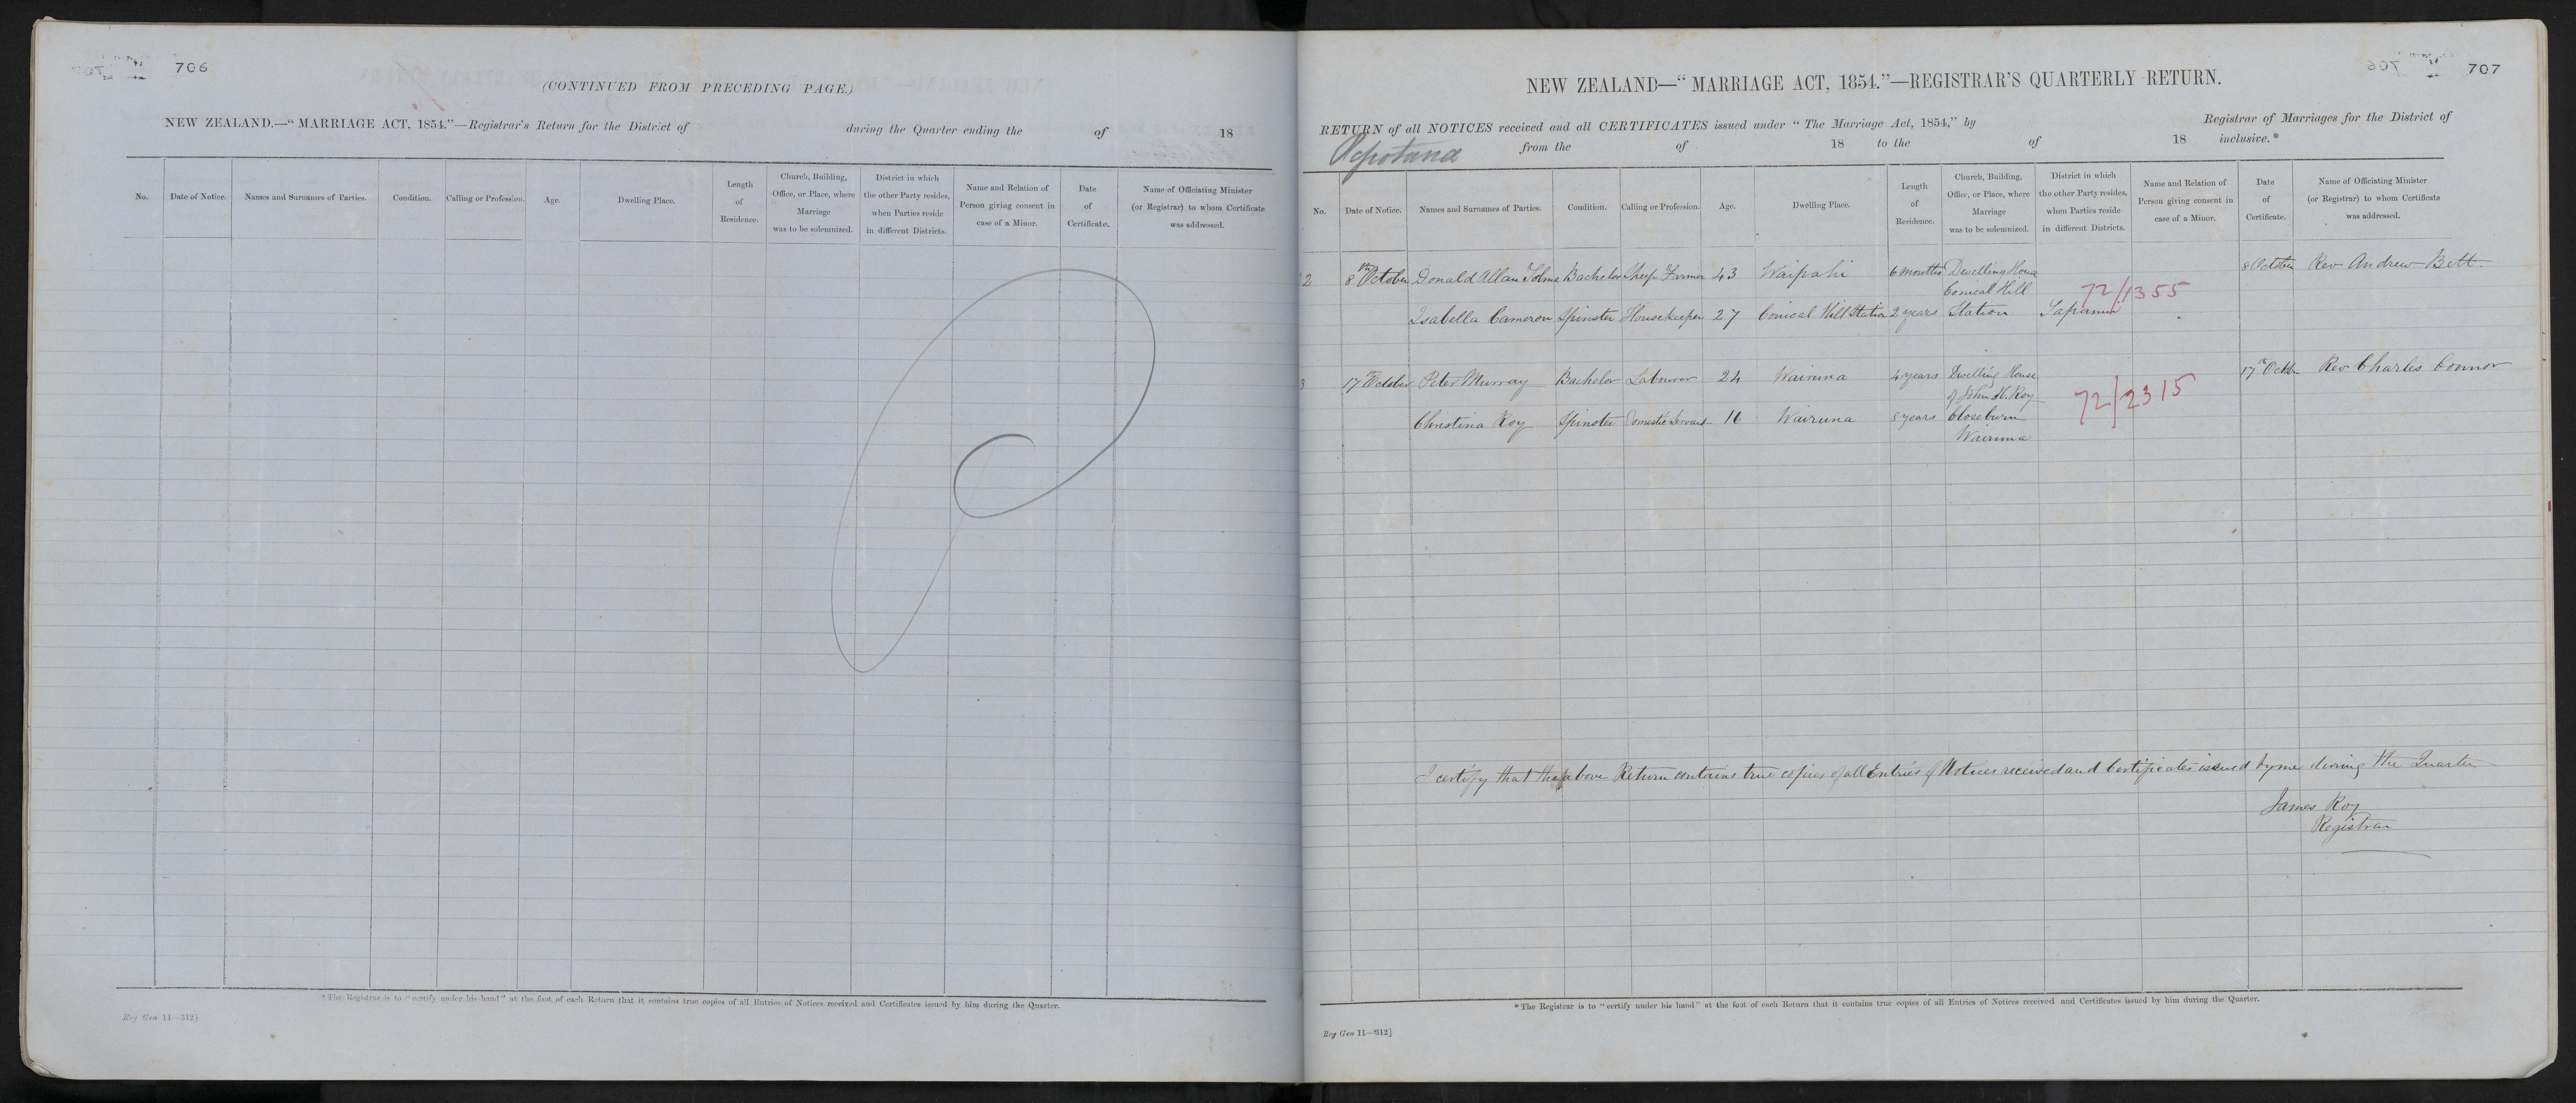 706
(CONTINUED FROM PRECEDING PAGE.)
NEW ZEALAND.—"MARRIAGE ACT, 1854."—Registrar's Return for the District of during the Quarter ending the of 18
No. Date of Notice. Names and Surnames of Parties. Condition. Calling or Profession. Age. Dwelling Place. Length of Residence. Church, Building, Office, or Place, where Marriage was to be solemnized. District in which the other Party resides, when Parties reside in different Districts. Name and Relation of Person giving consent in case of a Minor. Date of Certificate. Name of Officiating Minister (or Registrar) to whom Certificate was addressed.
*The Registrar is to "certify under his hand" at the foot of each Return that it contains true copies of all Entries of Notices received and Certificates issued by him during the Quarter.
Reg Gen 11—312]
707
NEW ZEALAND—"MARRIAGE ACT, 1854."—REGISTRAR'S QUARTERLY RETURN.
RETURN of all NOTICES received and all CERTIFICATES issued under "The Marriage Act, 1854," by Registrar of Marriages for the District of
from the of 18 to the of 18 inclusive.*
No. Date of Notice. Names and Surnames of Parties. Condition. Calling or Profession. Age. Dwelling Place. Length of Residence. Church, Building, Office, or Place, where Marriage was to be solemnized. District in which the other Party resides, when Parties reside in different Districts. Name and Relation of Person giving consent in case of a Minor. Date of Certificate. Name of Officiating Minister (or Registrar) to whom Certificate was addressed.
2 8th October Donald Allan Tolme Bachelor Sheep Farmer 43 Waipahi 6 months Dwelling House 8 October Rev Andrew Bett
Conical Hill 72/1355
Isabella Cameron Spinster Housekeeper 27 Conical Hill Station 2 years Station Tapanui
3 17th October Peter Murray Bachelor Labourer 24 Wairuna 4 years Dwelling House 17th Octbr Rev Charles Connor
of John H. Roy 72/2315
Christina Roy Spinster Domestic Servant 16 Wairuna 8 years Closeburn
Wairuna
I certify that the above Return contains true copies of all Entries of Notices received and Certificates issued by me during the Quarter
James Roy
Registrar
*The Registrar is to "certify under his hand" at the foot of each Return that it contains true copies of all Entries of Notices received and Certificates issued by him during the Quarter.
Reg Gen 11—312]